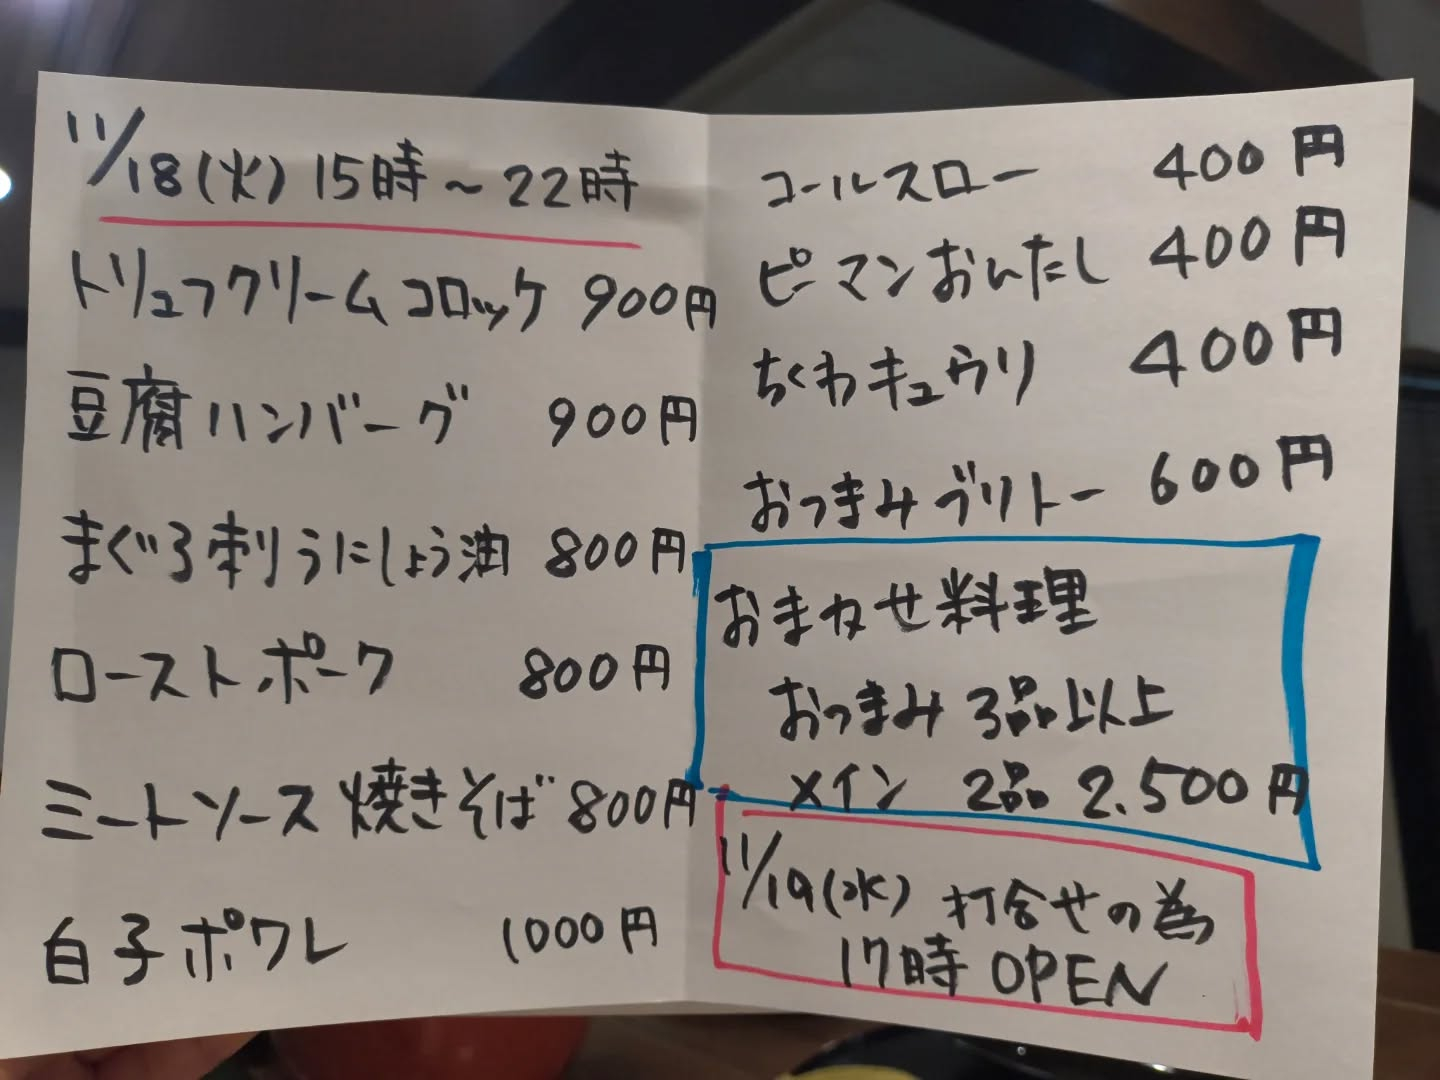 11/18(火)15時〜22時
トリュフクリームコロッケ 900円
豆腐ハンバーグ 900円
まぐろ刺うにしょう油 800円
ローストポーク 800円
ミートソース焼きそば 800円
白子ポワレ 1000円
コールスロー 400円
ピーマンおひたし 400円
ちくわキュウリ 400円
おつまみブリトー 600円
おまかせ料理
おつまみ 3品以上
メイン 2品 2.500円
11/19(水) 打合せの為
17時 OPEN